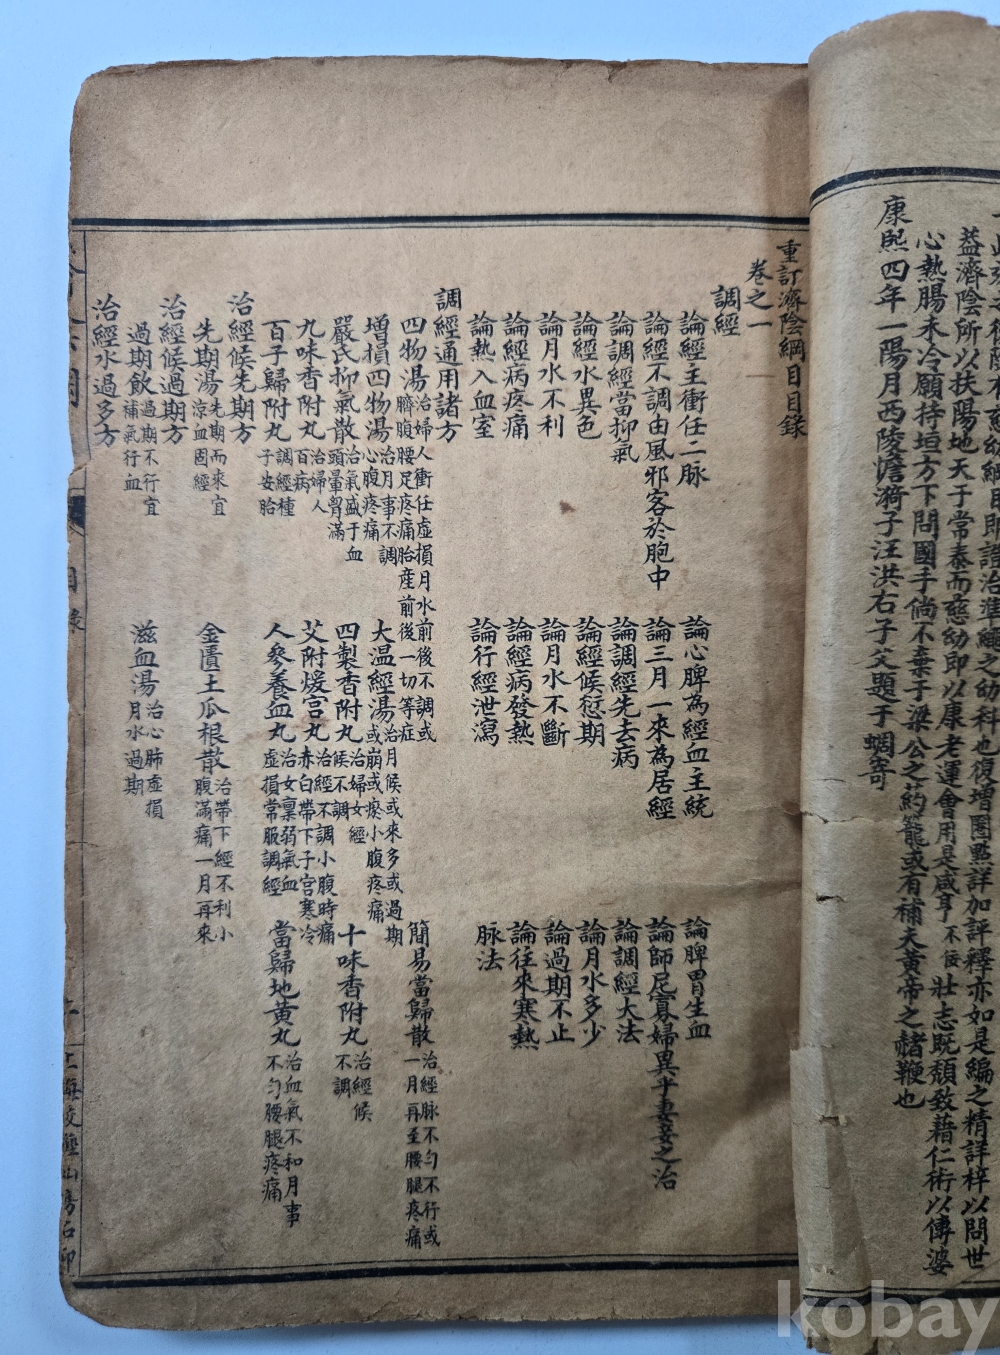 益濟陰所以扶陽地天于常泰而慈幼即以康老運會用是咸亨不佞壯志既頹致藉仁術以傳婆
心熱腸未冷願持垣方下問國手倘不棄予梁公之葯籠或有補夫黃帝之赭鞭也
康熙四年一陽月西陵澹漪子汪淇右子父題于蜩寄
重訂濟陰綱目目錄
卷之一
調經
論經主衝任二脉 論心脾為經血主統 論脾胃生血
論經不調由風邪客於胞中 論三月一來為居經 論師尼寡婦異乎妻妾之治
論調經當抑氣 論調經先去病 論調經大法
論經水異色 論經候愆期 論月水多少
論月水不利 論月水不斷 論過期不止
論經病疼痛 論經病發熱 論往來寒熱
論熱入血室 論行經泄瀉 脉法
調經通用諸方
四物湯治婦人衝任虛損月水前後不調或臍腹腰足疼痛胎産前後一切等症 簡易當歸散治經脉不勻不行或一月再至腰腿疼痛
增損四物湯治月事不調心腹疼痛 大温經湯治月候或來多或過期或崩或瘀小腹疼痛
嚴氏抑氣散治氣盛于血頭暈胷滿 四製香附丸治婦女經候不調 十味香附丸治經候不調
九味香附丸治婦人百病 艾附煖宫丸治經不調小腹時痛赤白帶下子宮寒冷
百子歸附丸調經種子安胎 人參養血丸治女禀弱氣血虛損常服調經 當歸地黃丸治血氣不和月事不勻腰腿疼痛
治經候先期方
先期湯先期而來宜凉血固經 金匱土瓜根散治帶下經不利小腹滿痛一月再來
治經候過期方
過期飲過期不行宜補氣行血 滋血湯治心肺虛損月水過期
治經水過多方
目錄
上海校經山房石印
kobay